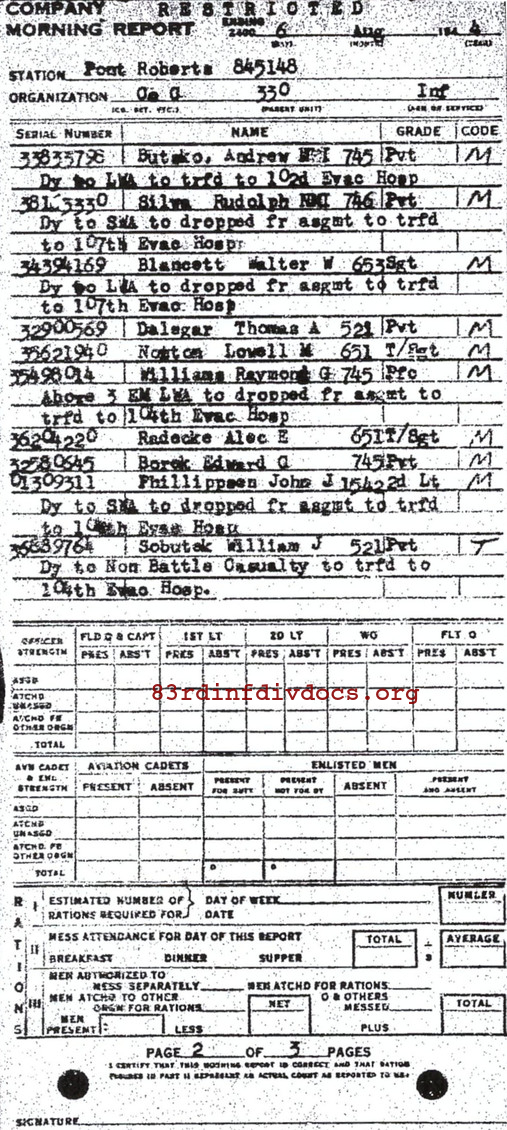 COMPANY RESTRICTED
MORNING REPORT ENDING 2400 6 Aug 194 4
(DAY) (MONTH) (YEAR)
STATION Pont Roberts 845148
ORGANIZATION Co G 330 Inf
(CO. DET. ETC.) (PARENT UNIT) (ARM OR SERVICE)
SERIAL NUMBER NAME GRADE CODE
33835798 Butsko, Andrew 745 Pvt M
Dy to LWA to trfd to 102d Evac Hosp
Silva Rudolph NMI 746 Pvt M
Dy to SWA to dropped fr asgmt to trfd
to 107th Evac Hosp
34394169 Blancett Walter W 653 Sgt M
Dy to LWA to dropped fr asgmt to trfd
to 107th Evac Hosp
32900569 Dalegar Thomas A 521 Pvt M
35621940 Norton Lowell M 651 T/Sgt M
35498014 Williams Raymond G 745 Pfc M
Above 3 EM LWA to dropped fr asgmt to
trfd to 104th Evac Hosp
36204220 Radecke Alec E 651 T/Sgt M
32580645 Borek Edward G 745 Pvt M
01309311 Phillippsen John J 1542 2d Lt M
Dy to SWA to dropped fr asgmt to trfd
to 104th Evac Hosp
Sobutak William J 521 Pvt T
Dy to Non Battle Casualty to trfd to
104th Evac Hosp.
OFFICER STRENGTH FLD O & CAPT 1ST LT 2D LT WO FLT O
PRES ABS'T PRES ABS'T PRES ABS'T PRES ABS'T PRES ABS'T
ASGD
83rdinfdivdocs.org
ATCHD UNASGD
ATCHD FR OTHER ORGN
TOTAL
AVN CADET & ENL STRENGTH AVIATION CADETS ENLISTED MEN
PRESENT ABSENT PRESENT FOR DUTY PRESENT NOT FOR DY ABSENT PRESENT AND ABSENT
ASGD
ATCHD UNASGD
ATCHD. FR OTHER ORGN
TOTAL
RATIONS
I ESTIMATED NUMBER OF RATIONS REQUIRED FOR DAY OF WEEK DATE NUMBER
II MESS ATTENDANCE FOR DAY OF THIS REPORT TOTAL ÷ 3 AVERAGE
BREAKFAST DINNER SUPPER
III MEN AUTHORIZED TO MESS SEPARATELY MEN ATCHD FOR RATIONS
MEN ATCHD TO OTHER ORGN FOR RATIONS NET O & OTHERS MESSED TOTAL
MEN PRESENT LESS PLUS
PAGE 2 OF 3 PAGES
I CERTIFY THAT THIS MORNING REPORT IS CORRECT AND THAT RATION
FIGURES IN PART II REPRESENT AN ACTUAL COUNT AS REPORTED TO ME.
SIGNATURE